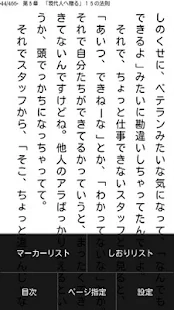 44/466- 第５章 「現代人へ贈る」１５の法則
しのくせに、ベテランみたいな気になって「
できるよ」みたいに勘違いしちゃってたん
それで、ちょっと仕事できないスタッフ
「あいつ、できねーな」とか、「わかって
それで自分たちができてるかっていうと、まった
きてないんですけどね。他人のアラばっか
うか、頭でかちになっちゃってて。
それでスタッフから、「そこ、ちょっと
マーカーリスト
しおりリスト
目次
ページ指定
設定